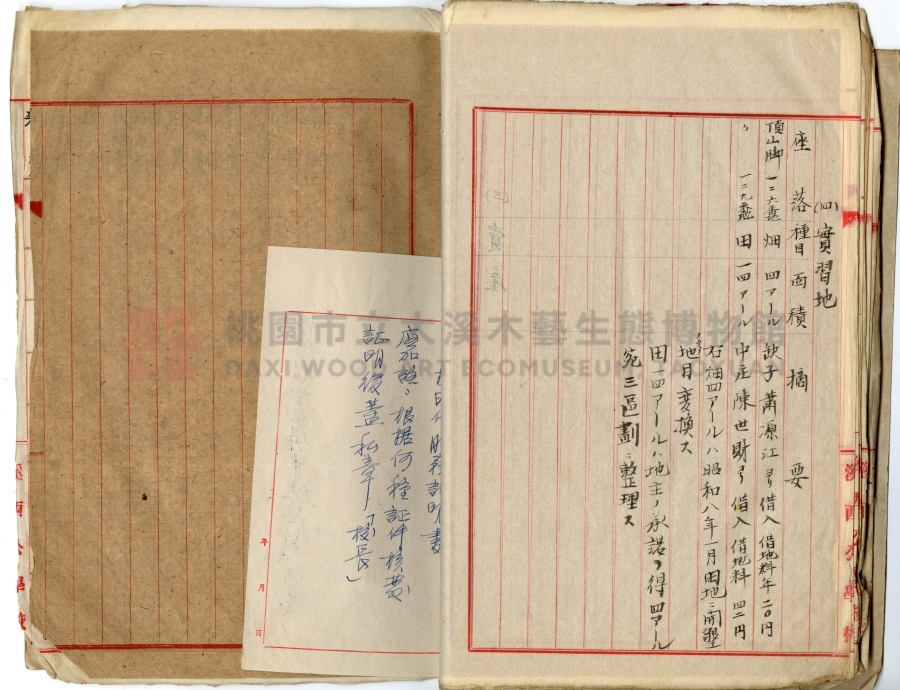 (四)實習地
座落 種目 面積 摘要
頂山脚 一二六番 畑 四アール 缺子 蕭源江ヨリ借入 借地料年二〇円
〃 一二九番 田 一四アール 中庄 陳世財ヨリ借入 借地料 四二円
石畑四アールハ昭和八年一月田地ニ開墾
地目変換ス
田一四アールハ地主ノ承諾ヲ得四アール
宛三區劃ニ整理ス
(三)
資產
應加註:根据何種証件核發
証明後蓋私章「校長」
年 月 日
桃園市立大溪木藝生態博物館
DAXI WOOD ART ECOMUSEUM, TAOYUAN